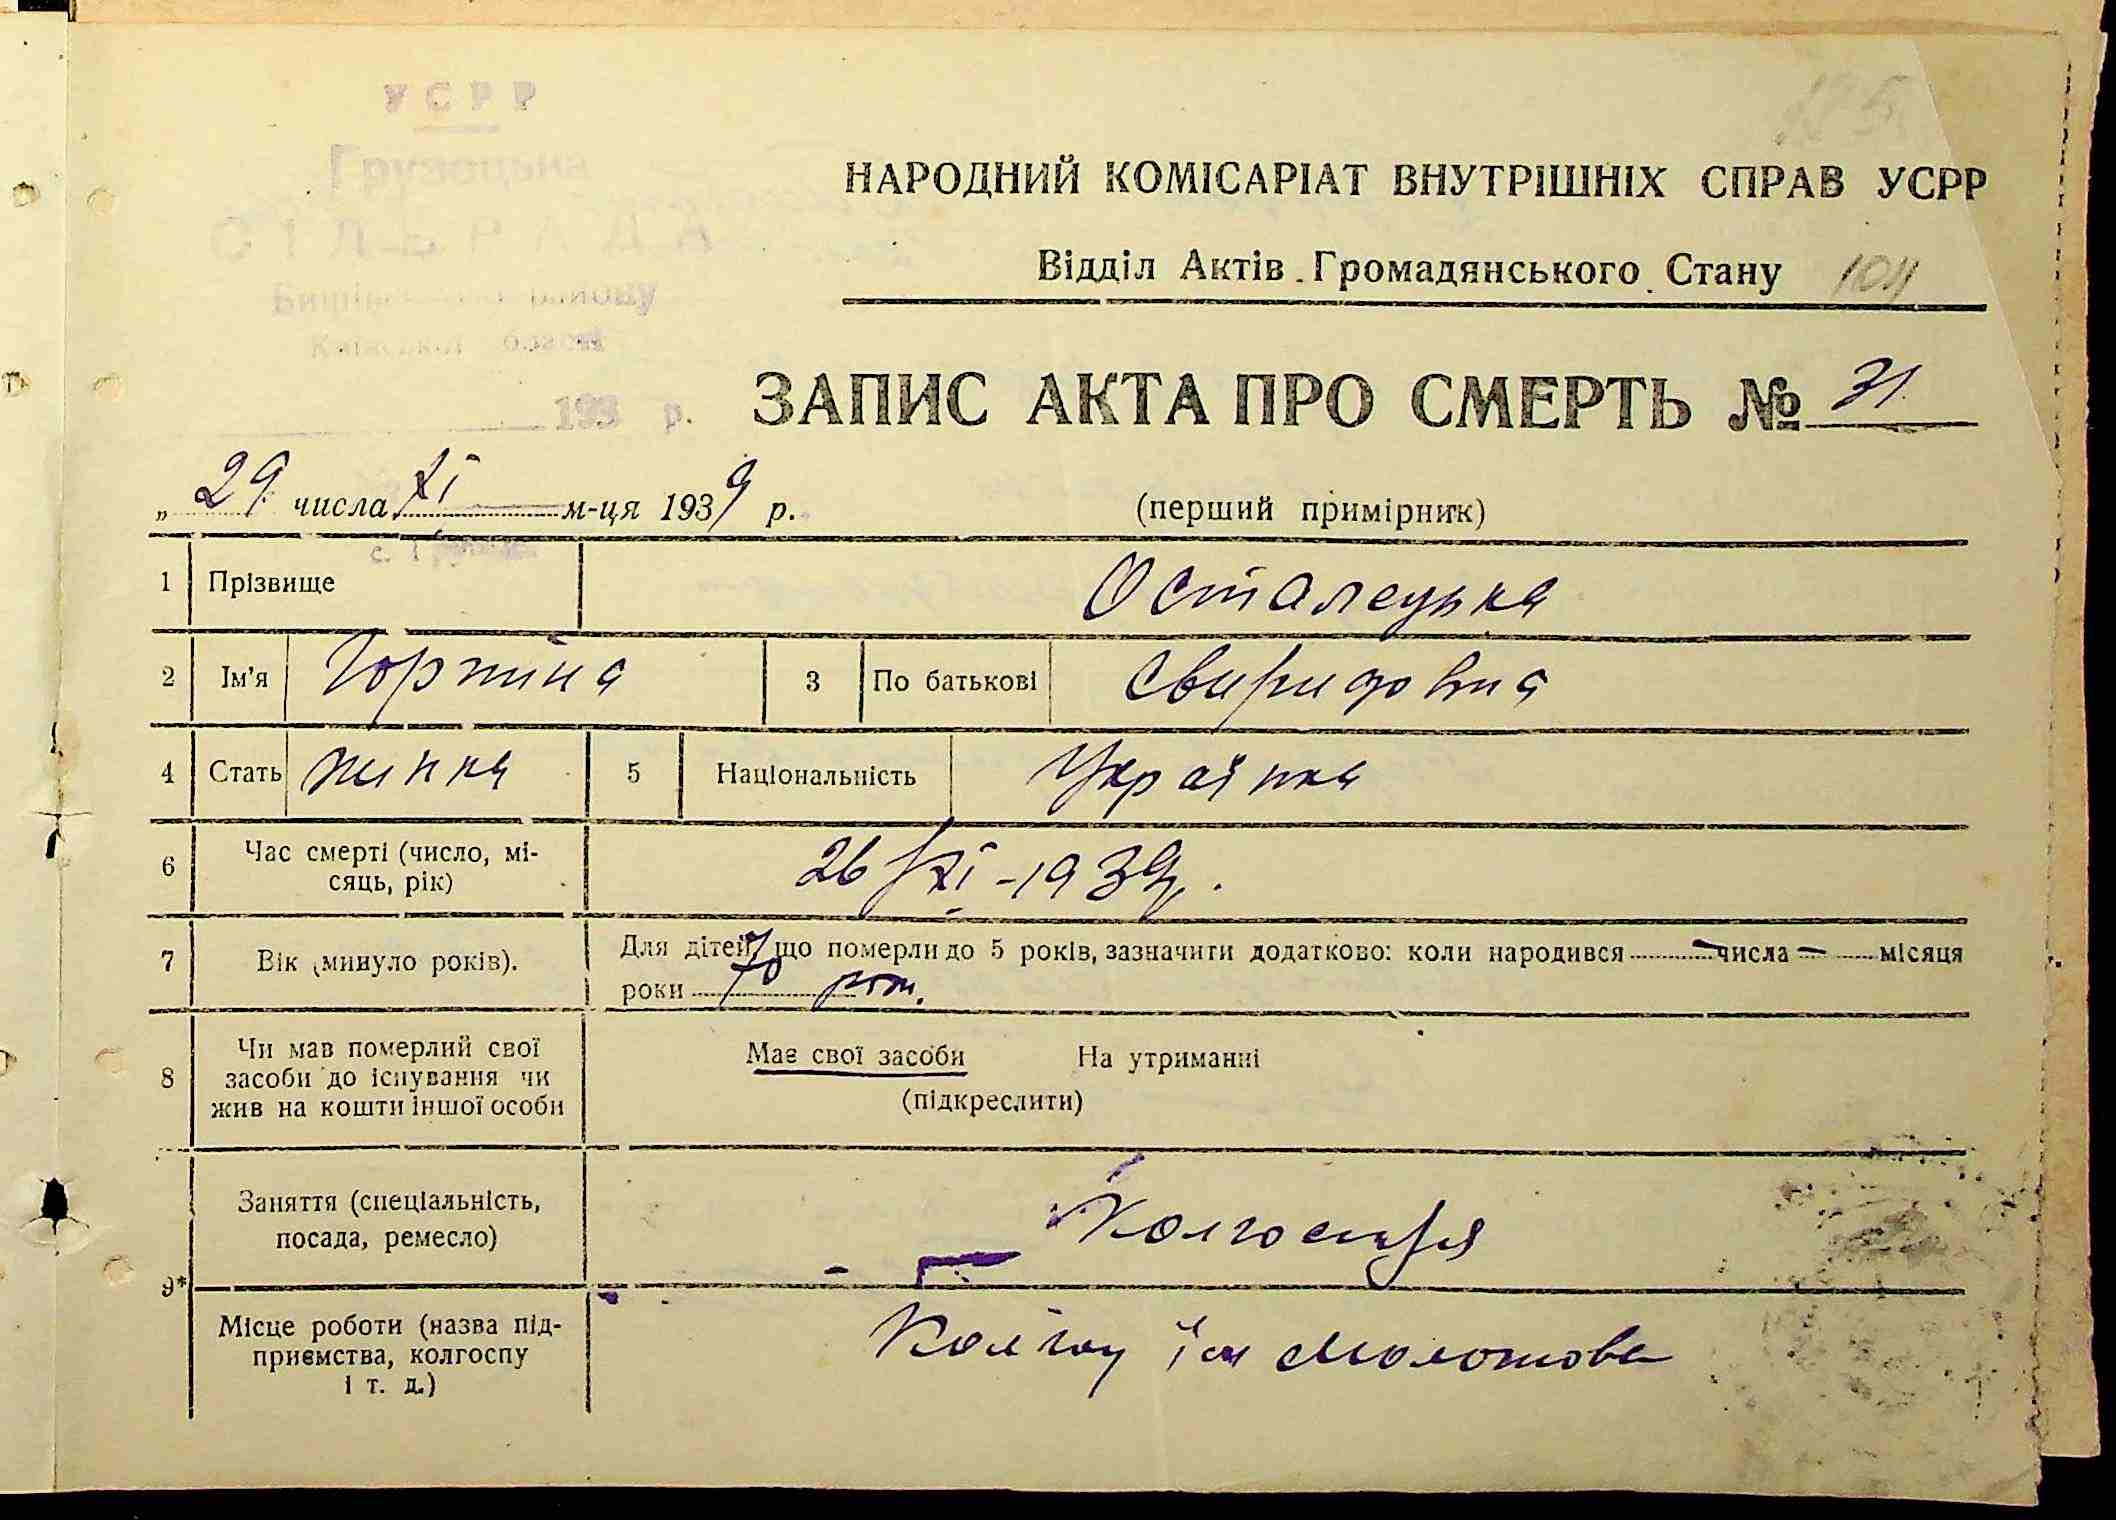 УСРР
Грузецька
СІЛЬРАДА
району
Київської області
193 р.
105
НАРОДНИЙ КОМІСАРІАТ ВНУТРІШНІХ СПРАВ УСРР
Відділ Актів Громадянського Стану 104
ЗАПИС АКТА ПРО СМЕРТЬ № 31
„ 29 числа XI м-ця 1939 р. (перший примірник)
1 Прізвище Осталецька
2 Ім'я Горпина 3 По батькові Свиридовна
4 Стать жинка 5 Національність Українка
6 Час смерті (число, мі-
сяць, рік) 26/XI-1939р.
7 Вік (минуло років). Для дітей, що померли до 5 років, зазначити додатково: коли народився числа місяця
роки 70 рок.
8 Чи мав померлий свої
засоби до існування чи
жив на кошти іншої особи
Має свої засоби На утриманні
(підкреслити)
9* Заняття (спеціальність,
посада, ремесло)
Місце роботи (назва під-
приємства, колгоспу
і т. д.)
їм Молотова